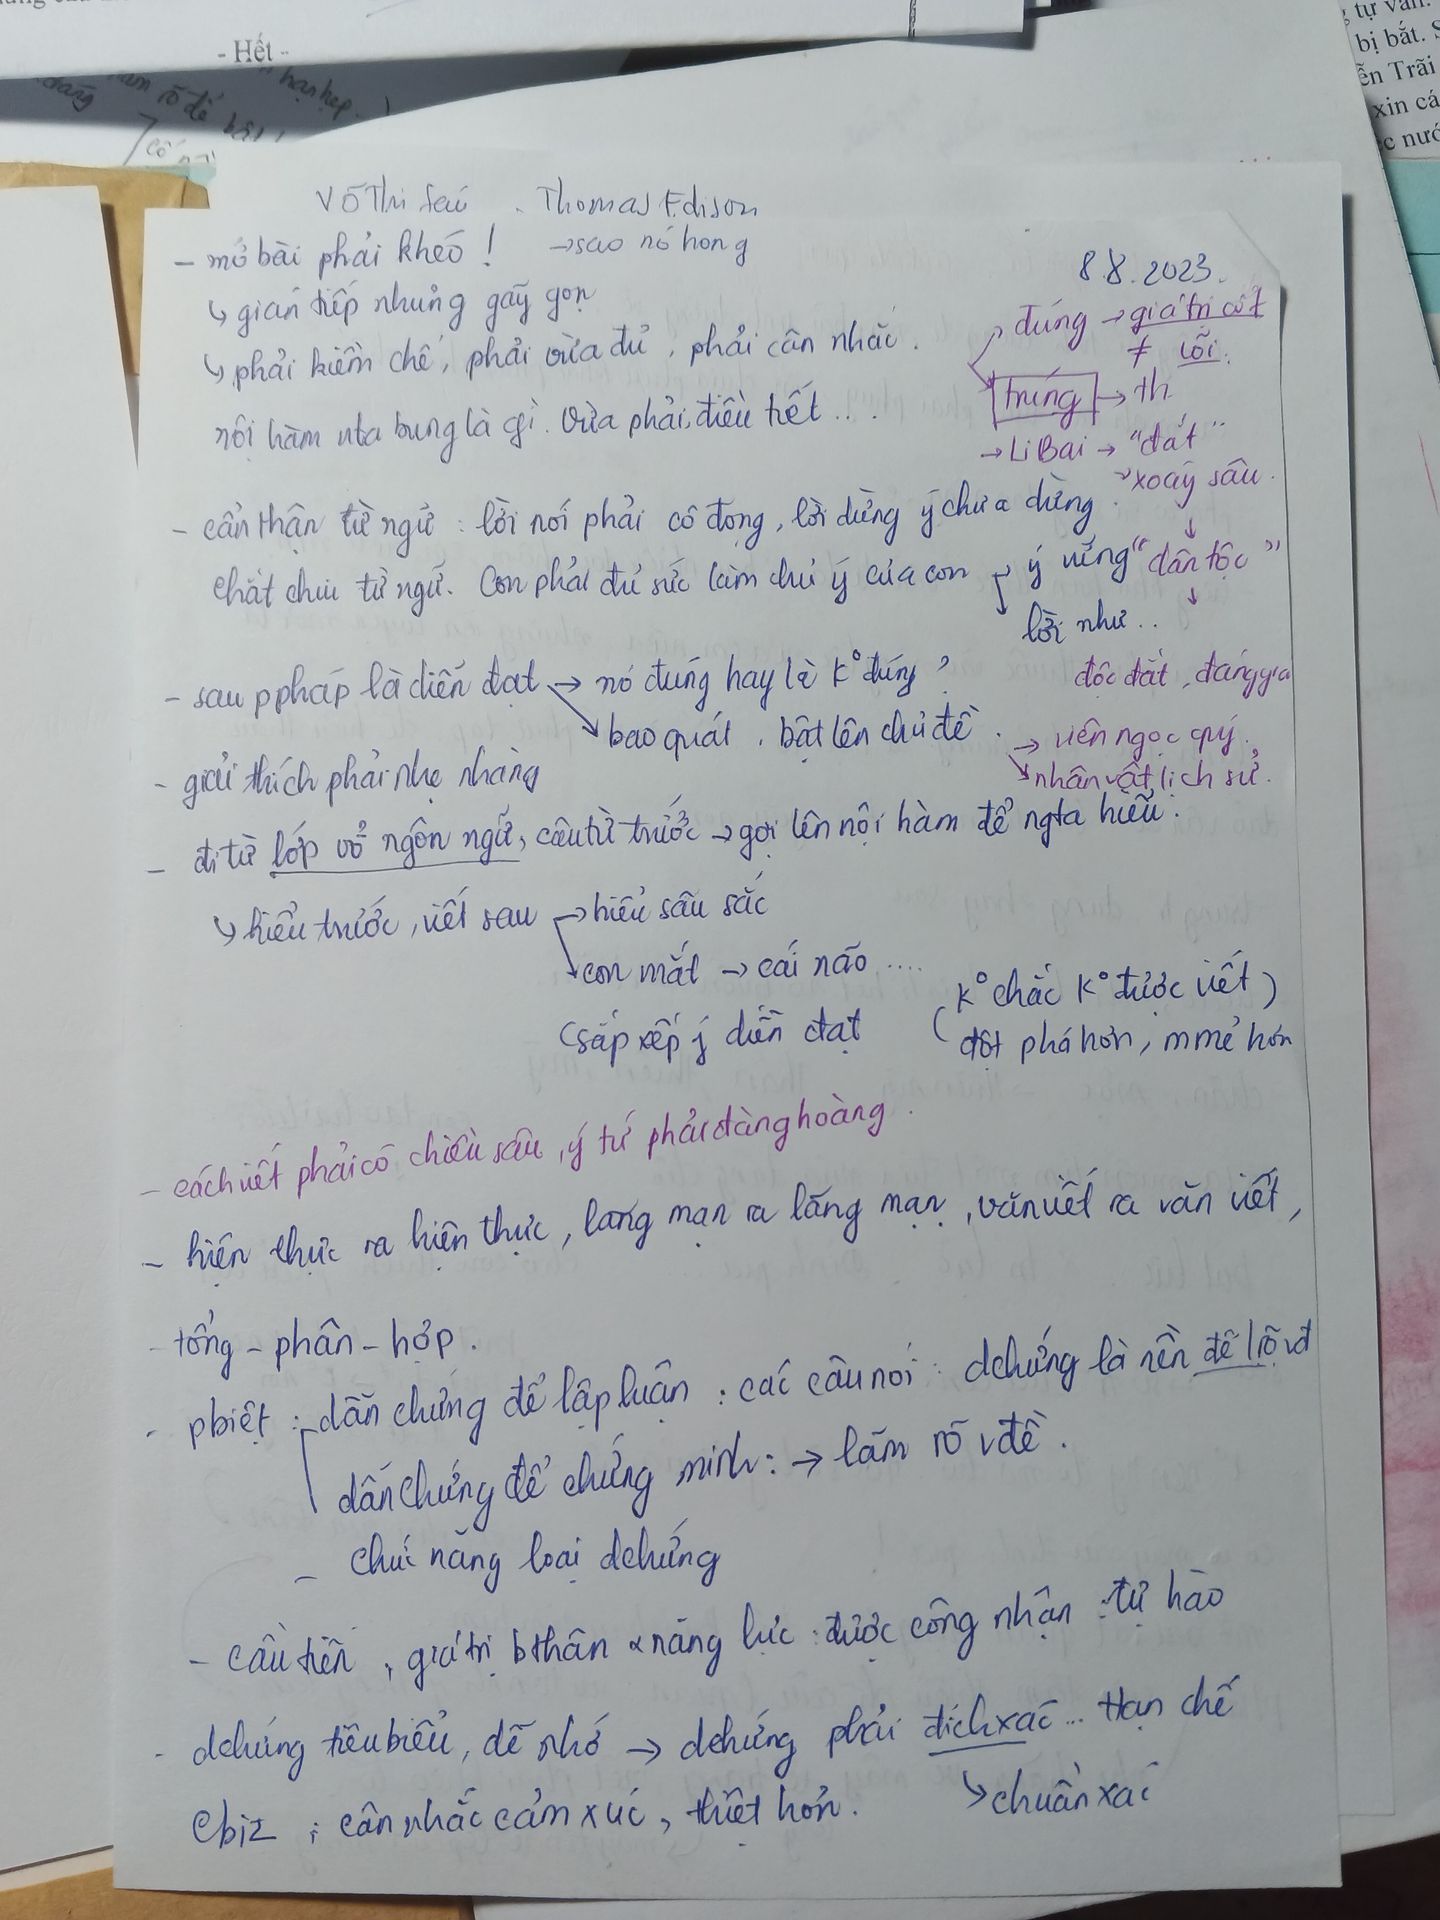 - Hết -
tự vẫn.
bị bắt. S
ễn Trãi
xin cá
c nước
Võ Thị Sáu . Thomas Edison
- mở bài phải khéo ! → sao nó hong
8.8.2023.
↳ gián tiếp nhưng gãy gọn
↳ phải kiềm chế, phải vừa đủ, phải cân nhắc.
nội hàm nta bung là gì. Vừa phải, điều tiết ...
đúng → giá trị cốt
≠ lõi.
trúng → th
→ Li Bai → "đất"
→ xoáy sâu.
↓
- cẩn thận từ ngữ : lời nói phải cô đọng, lời dừng ý chưa dừng.
chắt chiu từ ngữ. Con phải đủ sức làm chủ ý của con → ý vững "dân tộc"
↓
lời như ..
- sau ppháp là diễn đạt → nó đúng hay là k° đúng ?
độc đắt, đáng giá
bao quát, bật lên chủ đề.
→ viên ngọc quý.
- giải thích phải nhẹ nhàng
nhân vật lịch sử.
- đi từ lớp vỏ ngôn ngữ, câu từ trước → gợi lên nội hàm để ngta hiểu.
↳ hiểu trước, viết sau → hiểu sâu sắc
con mắt → cái não ....
(sắp xếp ý diễn đạt
(k° chắc k° được viết)
đột phá hơn, mmẻ hơn
- cách viết phải có chiều sâu, ý tứ phải đàng hoàng.
- hiện thực ra hiện thực, lãng mạn ra lãng mạn, văn viết ra văn viết,
- tổng - phân - hợp.
- pbiệt : dẫn chứng để lập luận : các câu nói : dchứng là nền để lrõ vđ
dẫn chứng để chứng minh : → làm rõ vđề.
- chức năng loại dchứng
- cầu tiến, giá trị bthân & năng lực : được công nhận : tự hào
- dchứng tiêu biểu, dễ nhớ → dchứng phải đích xác ... Hạn chế
↳ chuẩn xác
cbiz ; cân nhắc cảm xúc, thiệt hơn.